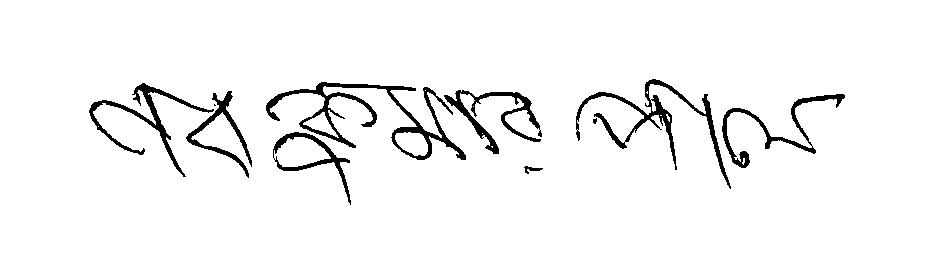 নব কুমার পাল